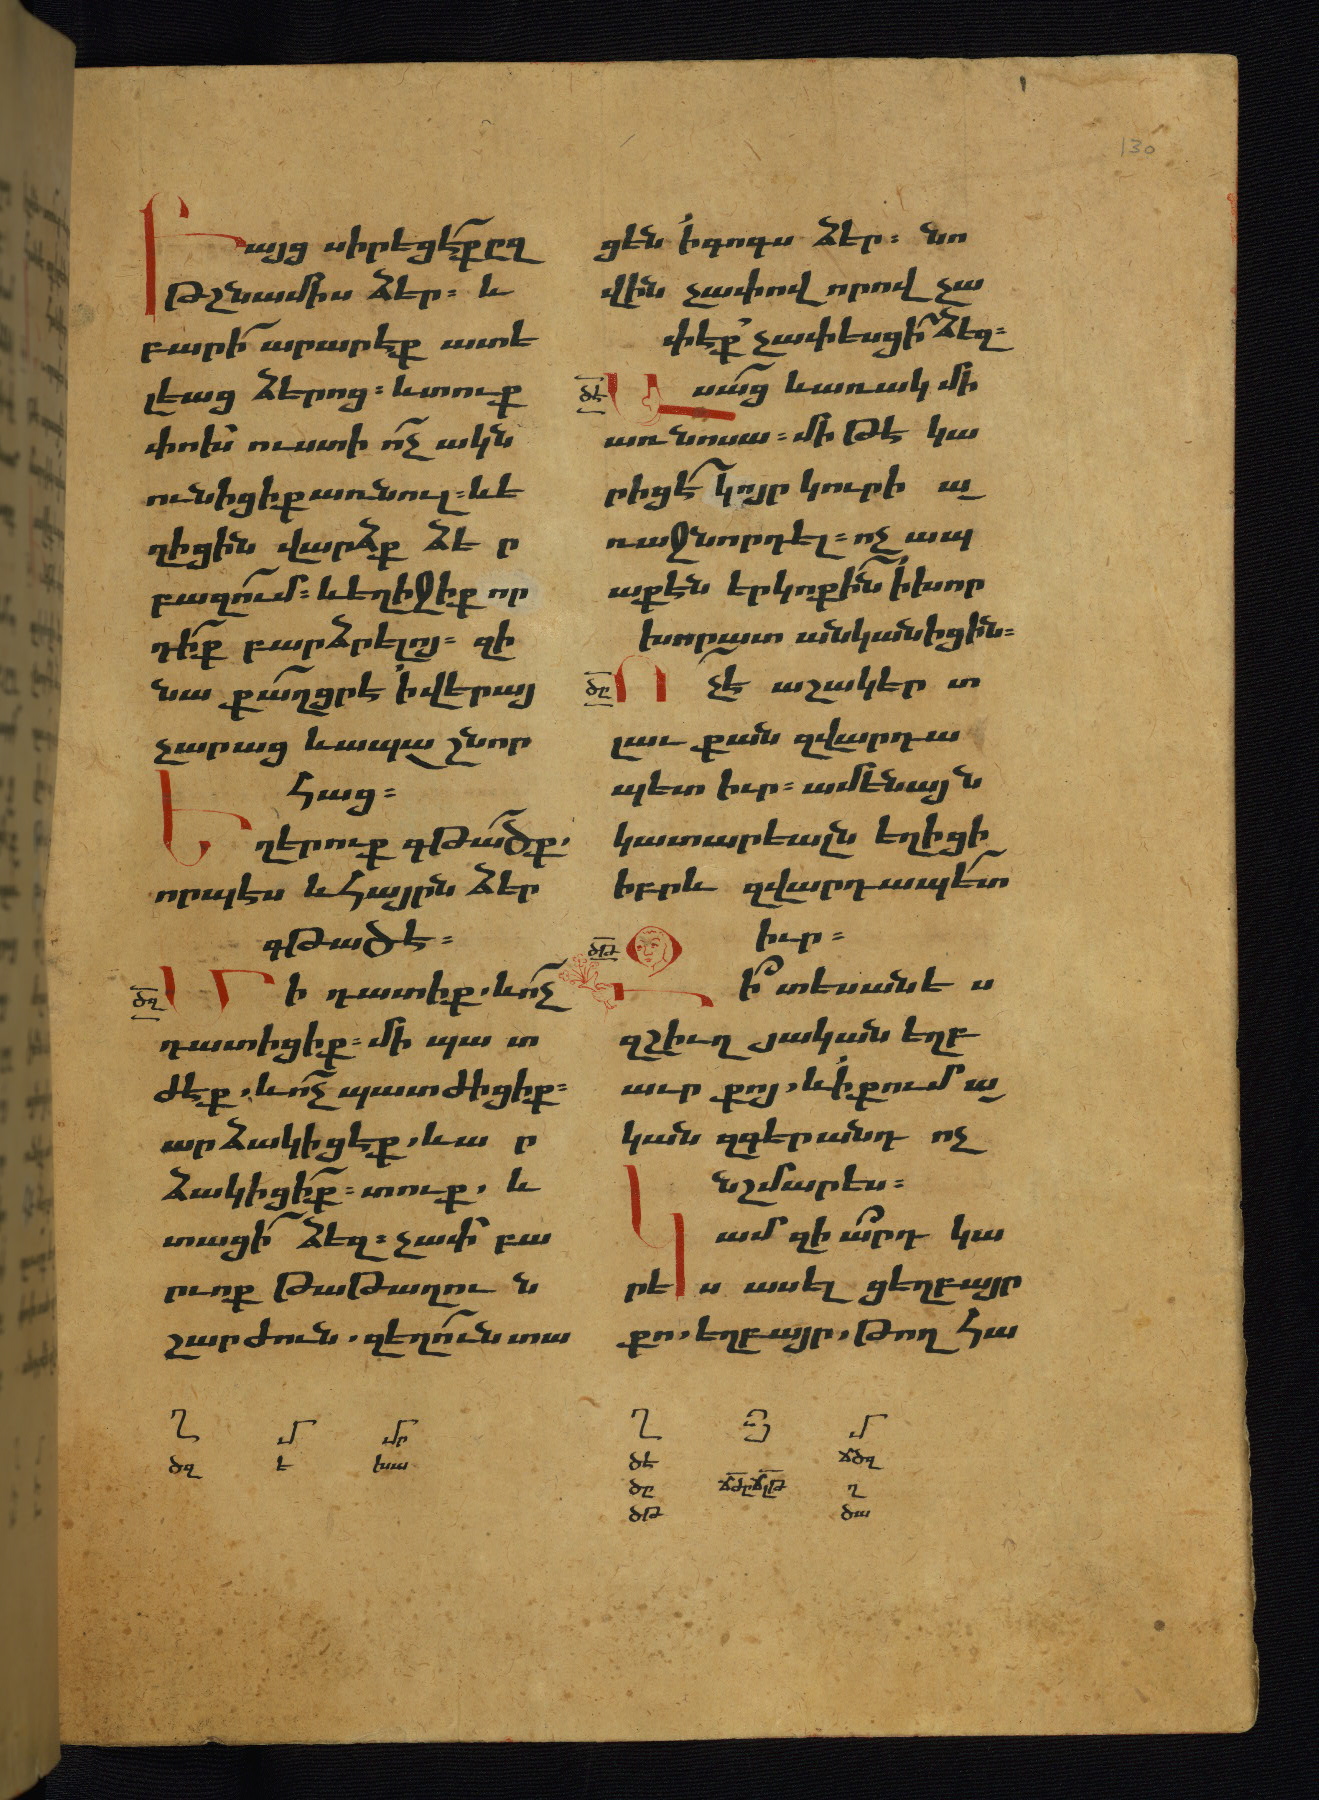 130
Բայց սիրեցէ՛ք ըզ
թշնամիս ձեր։ և
բարի՛ արարէք ատե
լեաց ձերոց։ և տուք
փոխ՝ ուստի ո՛չ ակն
ունիցիք առնուլ։ և ե
ղիցին վարձք ձե ր
բազո՛ւմ։ և եղիջիք որ
դի՛ք բարձրելոյ։ զի
նա քա՛ղցր է ՛ի վերայ
չարաց և ապաշնոր
հաց։
Եղերուք գթա՛ծք,
որպէս և հայրն ձեր
գթած է։
ծզ Մի դատիք, և ո՛չ
դատիցիք։ մի պա տ
ժէք, և ո՛չ պատժիցիք։
արձակիցէք, և ա ր
ձակիցի՛ք։ տուք, և
տացի՛ ձեզ։ չափ՝ բա
րւոք թաթաղու ն
շարժուն, զեղո՛ւն տա
ծզ է խա
ցեն ՛ի գոգս ձեր։ նո
վին չափով որով չա
փէք՝ չափեսցի՛ ձեզ։
ծէ Ասա՛ց և առակ մի
առ նոսա։ մի թէ կա
րիցէ՛ կոյր կուրի ա
ռաջնորդել։ ոչ ապ
աքէն երկոքի՛ն ՛ի խոր
խորատ անկանիցին։
ծը Ոչ է՛ աշակեր տ
լաւ քան զվարդա
պետ իւր։ ամենայ ն
կատարեալն եղիցի
իբրև զվարդապե՛տ
իւր։
ծթ Զի՞ տեսանե ս
զշիւղ յական եղբ
աւր քոյ, և ՛ի քում ա
կան զգերանդ ոչ
նշմարես։
Կամ զի ա՞րդ կա
րե ս ասել ցեղբայր
քո, եղբայր, թող հա
ծէ ճծզ
ծը ճժը ճլթ ղ
ծթ ծա